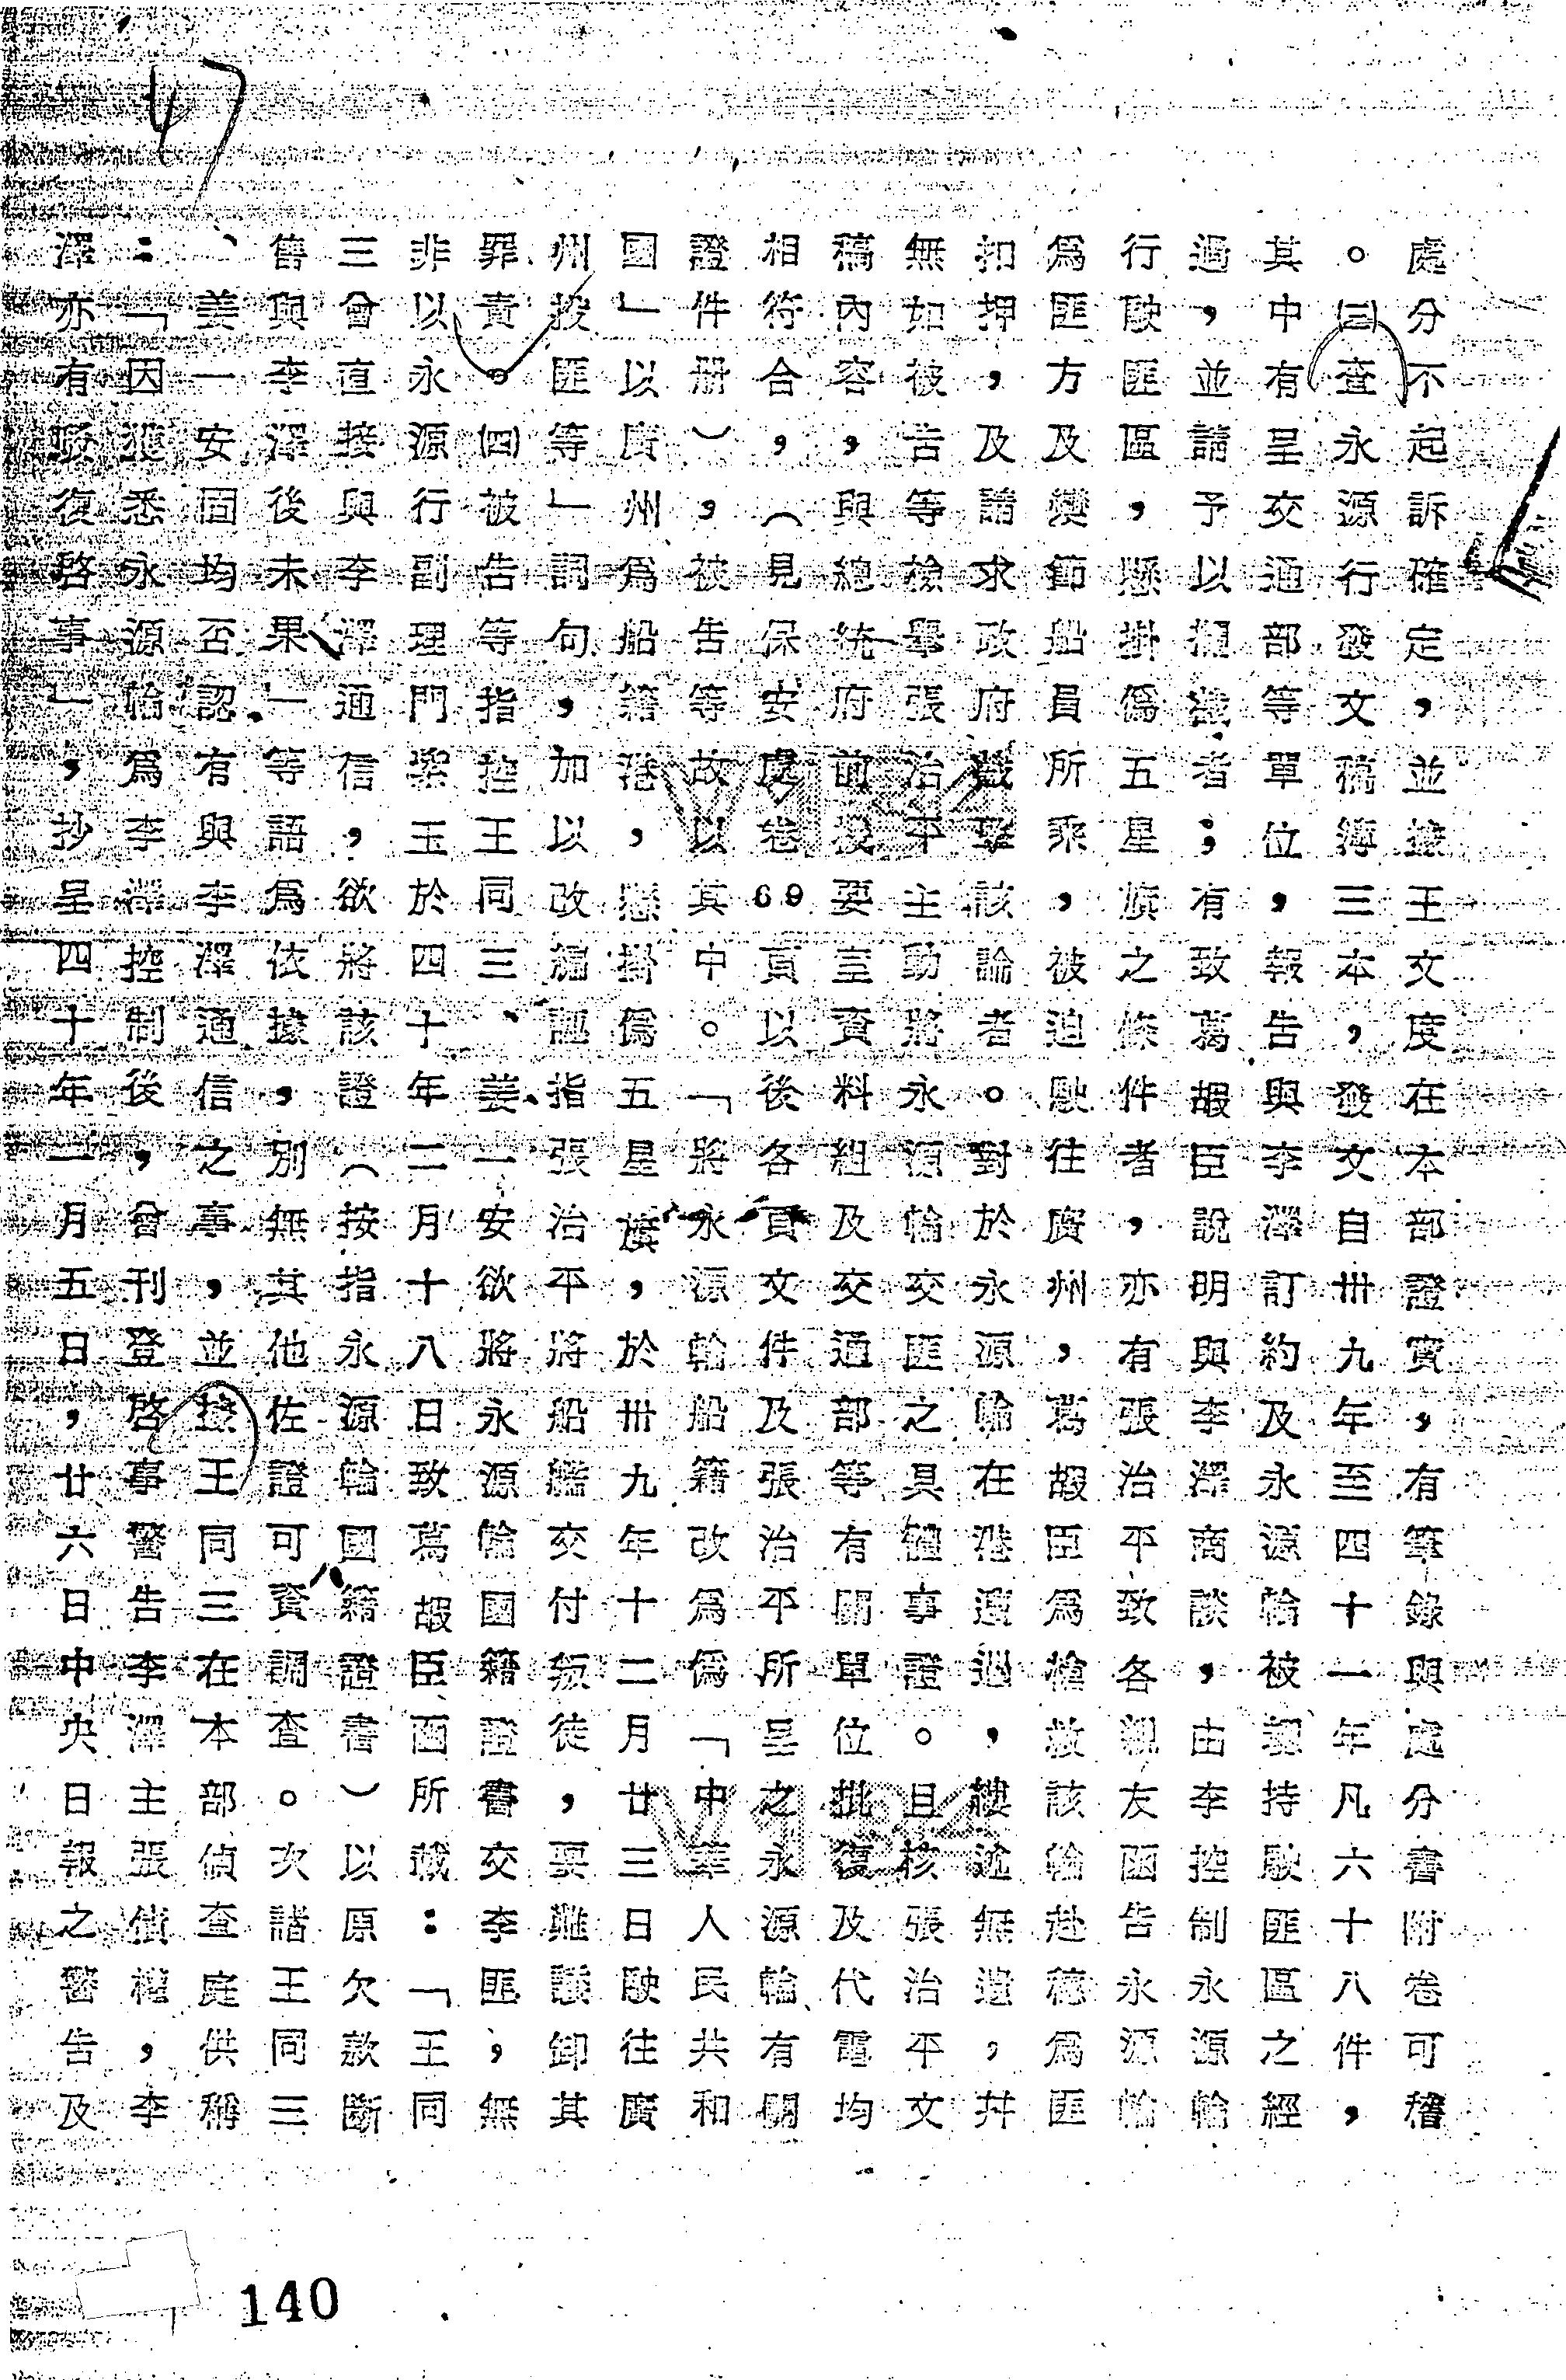 處分不起訴確定，並據王文度在本部證實，有筆錄與處分書附卷可稽
。㈢查永源行發文稿簿三本，發文自卅九年至四十一年凡六十八件，
其中有呈交通部等單位，報告與李澤訂約及永源輪被劫持駛匪區之經
過，並請予以攔截者；有致葛嘏臣說明與李澤商談，由李控制永源輪
行駛匪區，懸掛僞五星旗之條件者，亦有張治平致各親友函告永源輪
爲匪方及變節船員所乘，被迫駛往廣州，葛嘏臣爲搶救該輪赴穗爲匪
扣押，及請求政府截擊該論者。對於永源輪在港遭遇，縷述無遺，幷
無如被告等檢舉張治平主動將永源輪交匪之具體事證。且核張治平文
稿內容，與總統府前機要室資料組及交通部等有關單位批復及代電均
相符合，（見保安處卷69頁以後各頁文件及張治平所呈之永源輪有關
證件册），被告等故以其中。「將永源輪船籍改爲僞「中華人民共和
國」以廣州爲船籍港，懸掛僞五星旗，於卅九年十二月廿三日駛往廣
州投匪等」詞句，加以改編誣指張治平將船艦交付叛徒，要難諉卸其
罪責。㈣被告等指控王同三、姜一安欲將永源輪國籍證書交李匪，無
非以永源行副理門棨玉於四十年二月十八日致葛嘏臣函所載：「王同
三曾直接與李澤通信，欲將該證（按指永源輪國籍證書）以原欠款斷
售與李澤後未果」等語爲依據，別無其他佐證可資調查。次詰王同三
、姜一安固均否認有與李澤通信之事，並據王同三在本部偵查庭供稱
：「因獲悉永源輪爲李澤控制後，曾刊登啓事警告李澤主張債權，李
澤亦有駁復啓事」，抄呈四十年一月五日，廿六日中央日報之警告及
47
140